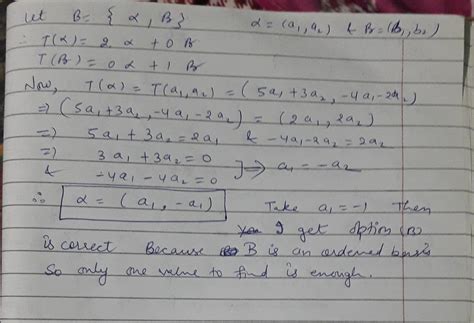 Let B = { α, β }    α = (a₁, a₂) & β = (b₁, b₂)
∴ T(α) = 2 α + 0 β
T(β) = 0 α + 1 β
Now, T(α) = T(a₁, a₂) = (5a₁ + 3a₂, -4a₁ - 2a₂)
⇒ (5a₁ + 3a₂, -4a₁ - 2a₂) = (2a₁, 2a₂)
⇒ 5a₁ + 3a₂ = 2a₁ & -4a₁ - 2a₂ = 2a₂
⇒ 3a₁ + 3a₂ = 0
& -4a₁ - 4a₂ = 0 ] ⇒ a₁ = -a₂
∴ α = (a₁, -a₁)    Take a₁ = -1 Then
I get option (B)
is correct Because B is an ordered basis
So only one value to find is enough.